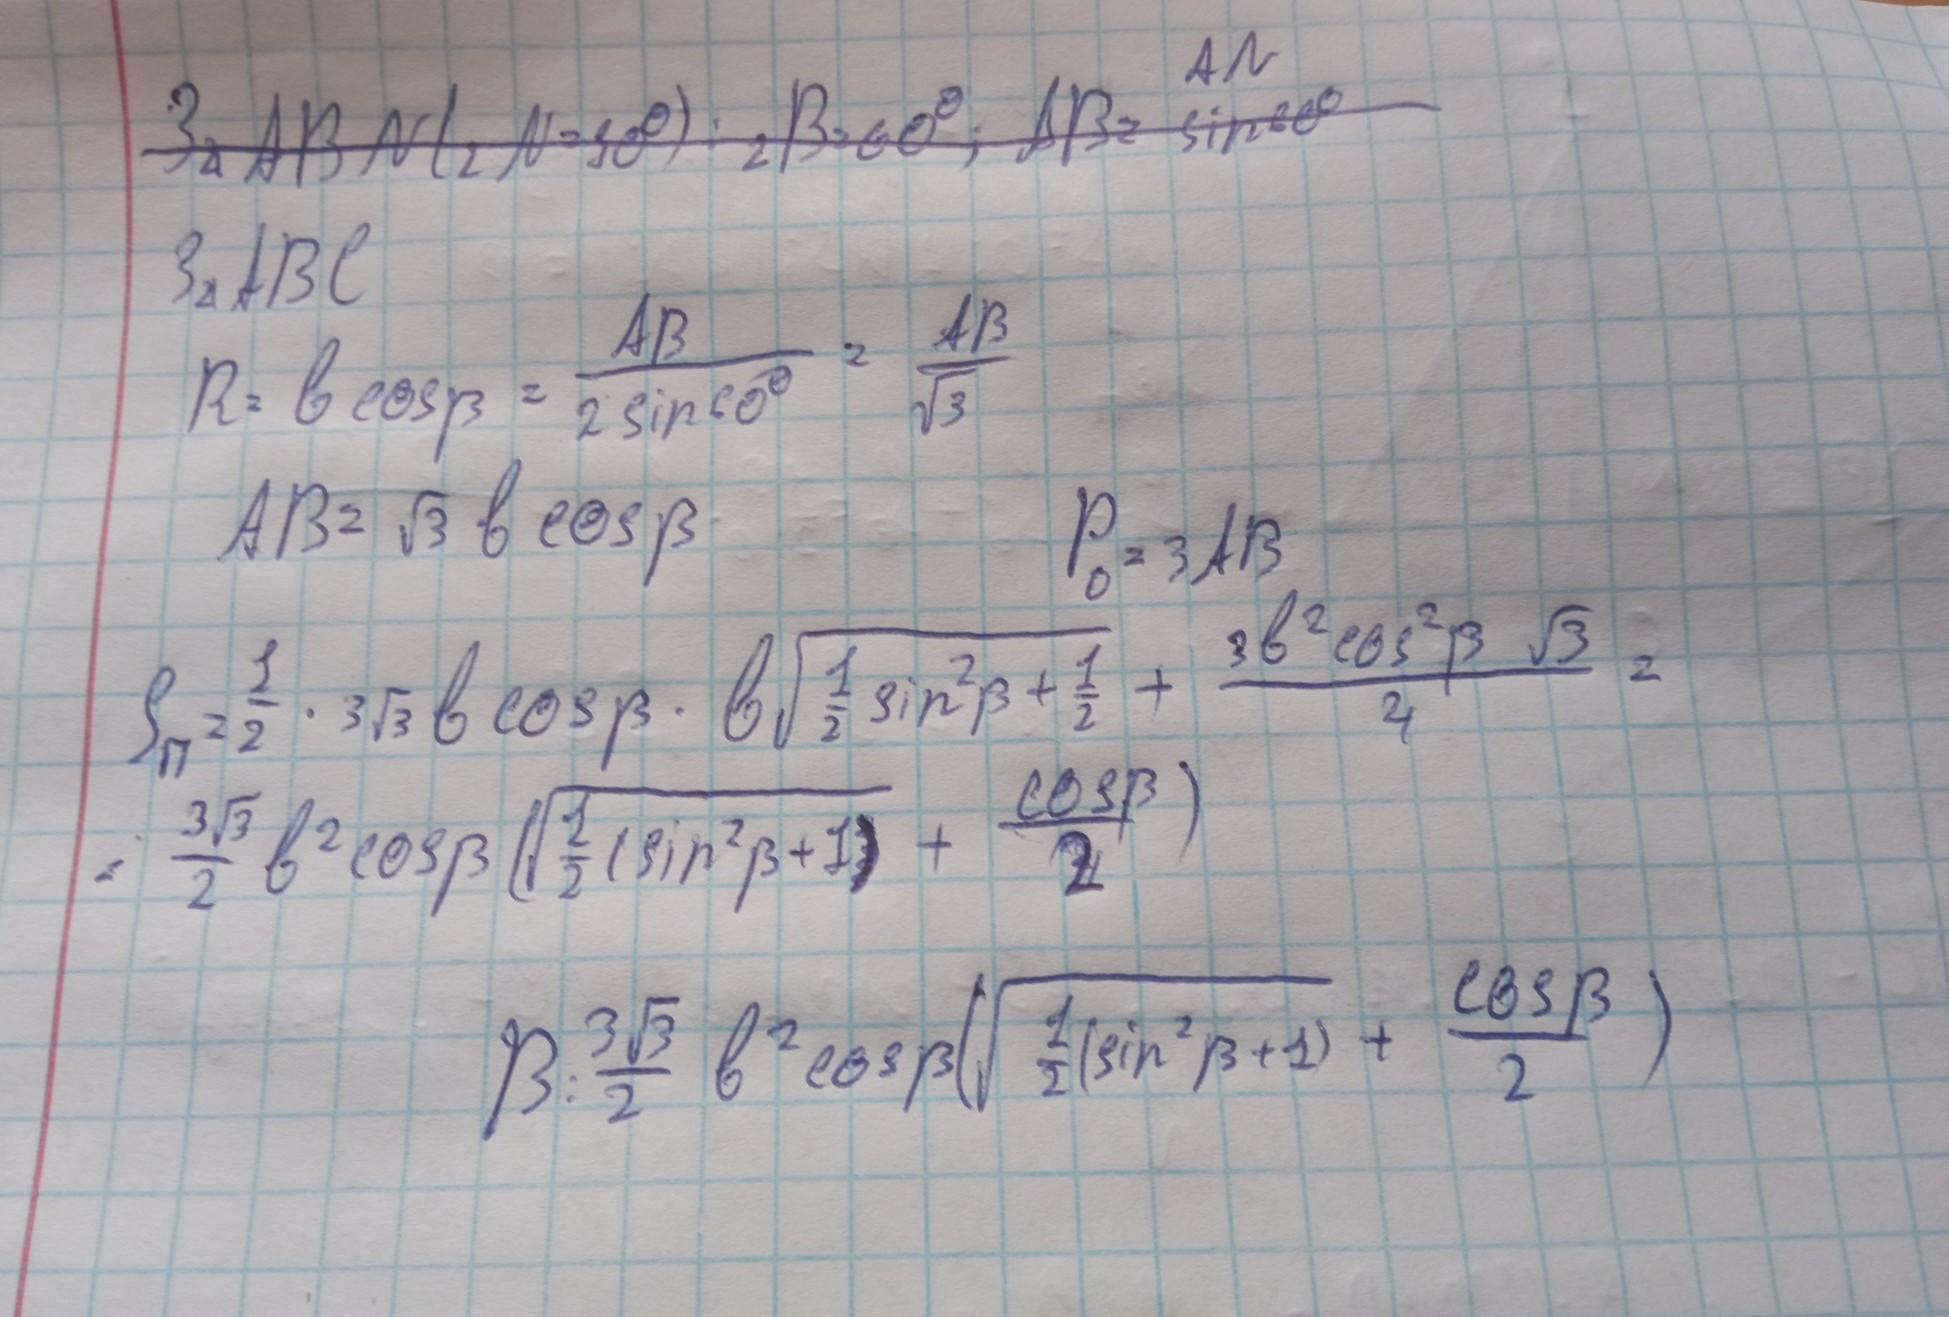 З△ ABN(∠N=90⁰): ∠B=60⁰; AB= AN/sin60⁰
З△ABC
R= b cosβ = AB/(2 sin60⁰) = AB/√3
AB= √3 b cosβ
P₀=3AB
Sп=1/2 · 3√3 b cosβ · b√(1/2 sin²β+1/2) + (3b²cos²β √3)/4 =
= 3√3/2 b²cosβ(√(1/2(sin²β+1)) + cosβ/2)
В: 3√3/2 b²cosβ(√(1/2(sin²β+1)) + cosβ/2)